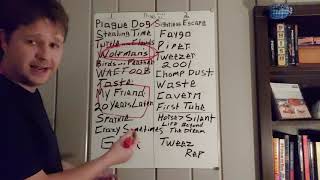 Plague Dog
Stealing Time
Turtle
Wolfmans
Birds
WAFTOOB
Taste
My Friend
20 Years Later
Sparkle
Crazy Sometimes
2
Sightless Escape
Fargo
Piper
Tweezer
2001
Chomp Dust
Waste
Cavern
First Tube
Horse > Silent
Life Beyond
The Dream
Tweez
Rep